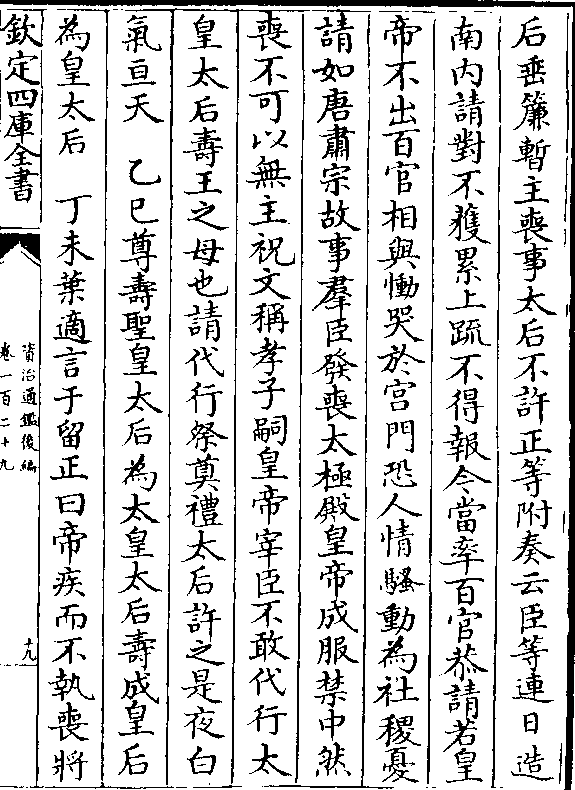 后垂簾暫主喪事太后不許正等附奏云臣等連日造
南内請對不獲累上疏不得報今當率百官恭請若皇
帝不出百官相與慟哭於宫門恐人情騷動為社稷憂
請如唐肅宗故事羣臣發喪太極殿皇帝成服禁中然
喪不可以無主祝文稱孝子嗣皇帝宰臣不敢代行太
皇太后壽王之母也請代行祭奠禮太后許之是夜白
氣亘天　乙巳尊壽聖皇太后為太皇太后壽成皇后
為皇太后　丁未葉適言于留正曰帝疾而不執喪將
欽定四庫全書
資治通鑑後編
卷一百二十九
十九